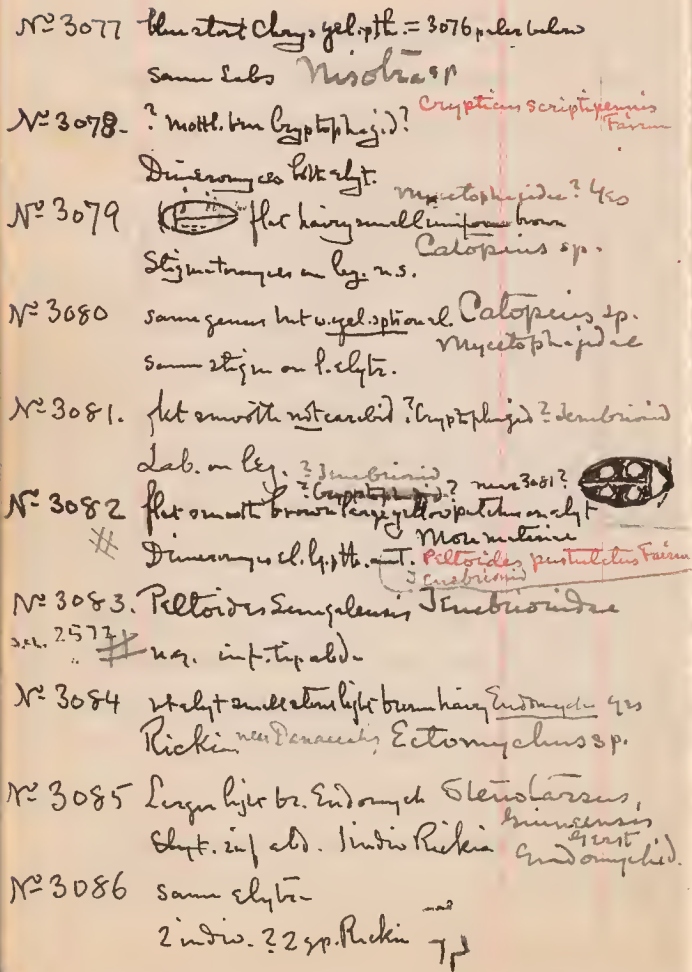 Nº 3077 blue stout Chrys yel. pth. = 3076 paler below
same Labs Nisotra sp
Nº 3078. ? mottl. brn Cryptophagid? Crypticus scriptipennis Fairm
Dimeromyces both elyt.
Mycetophagidae? Yes
Nº 3079 flat hairy small uniform brown
Catopius sp.
Stigmatomyces on leg. n.s.
Nº 3080 same genus but w. yel. spt on el. Catopius sp.
Mycetophagidae
same stigm on l. elytr.
Nº 3081. flat smooth not carabid ? Cryptophagid ? Tenebrionid
Lab. on leg. ? Tenebrionid
? Cryptophagid ? near 3081?
Nº 3082 flat smooth brown large yellow patches on elyt
More material
Dimeromyces el. lg. pth. ant. Peltoides pustulatus Fairm
Tenebrionid
Nº 3083. Peltoides Senegalensis Tenebrionidae
2572 n.g. inf. tip abd.
Nº 3084 small light brown hairy Endomych yes
Rickia near Panaccatus Ectomychus sp.
Nº 3085 Larger light br. Endomych Stenotarsus,
guineensis
Gerst
Elyt. inf abd. 1 indiv Rickia Endomychid.
Nº 3086 same elytr.
2 indiv. ? 2 sp. Rickia